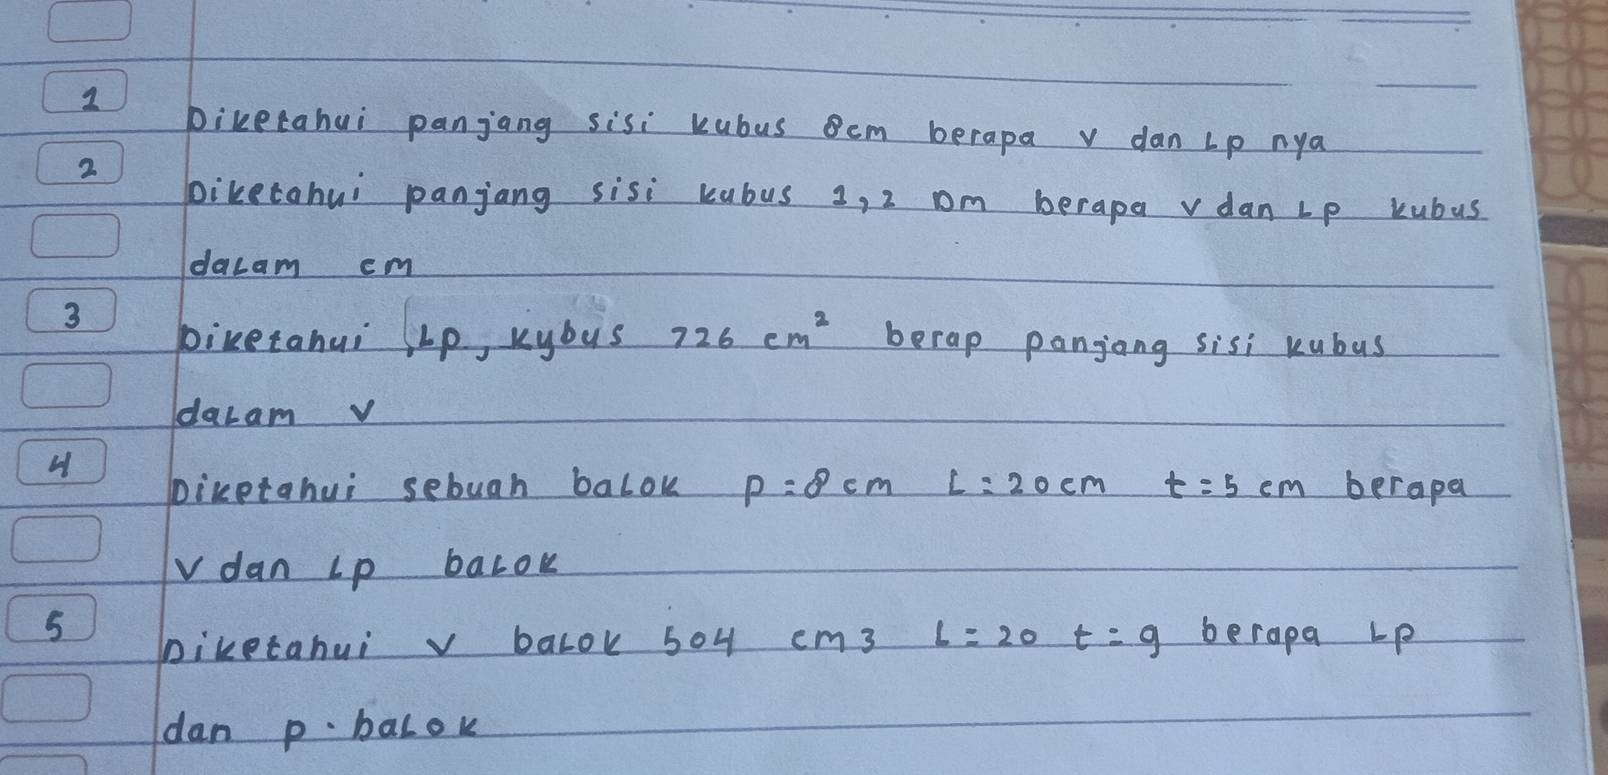 1 Diketahui panjang sisi kubus 8cm berapa v dan Lp nya
2 Diketahui panjang sisi kubus 1,2 Dm berapa v dan Lp kubus
dalam cm
3 Diketahui Lp, kubus 726 cm² berap panjang sisi kubus
dalam v
4 Diketahui sebuah balok p=8cm L=20cm t=5 cm berapa
v dan Lp balok
5 Diketahui v balok 504 cm3 L=20 t=9 berapa Lp
dan p. balok